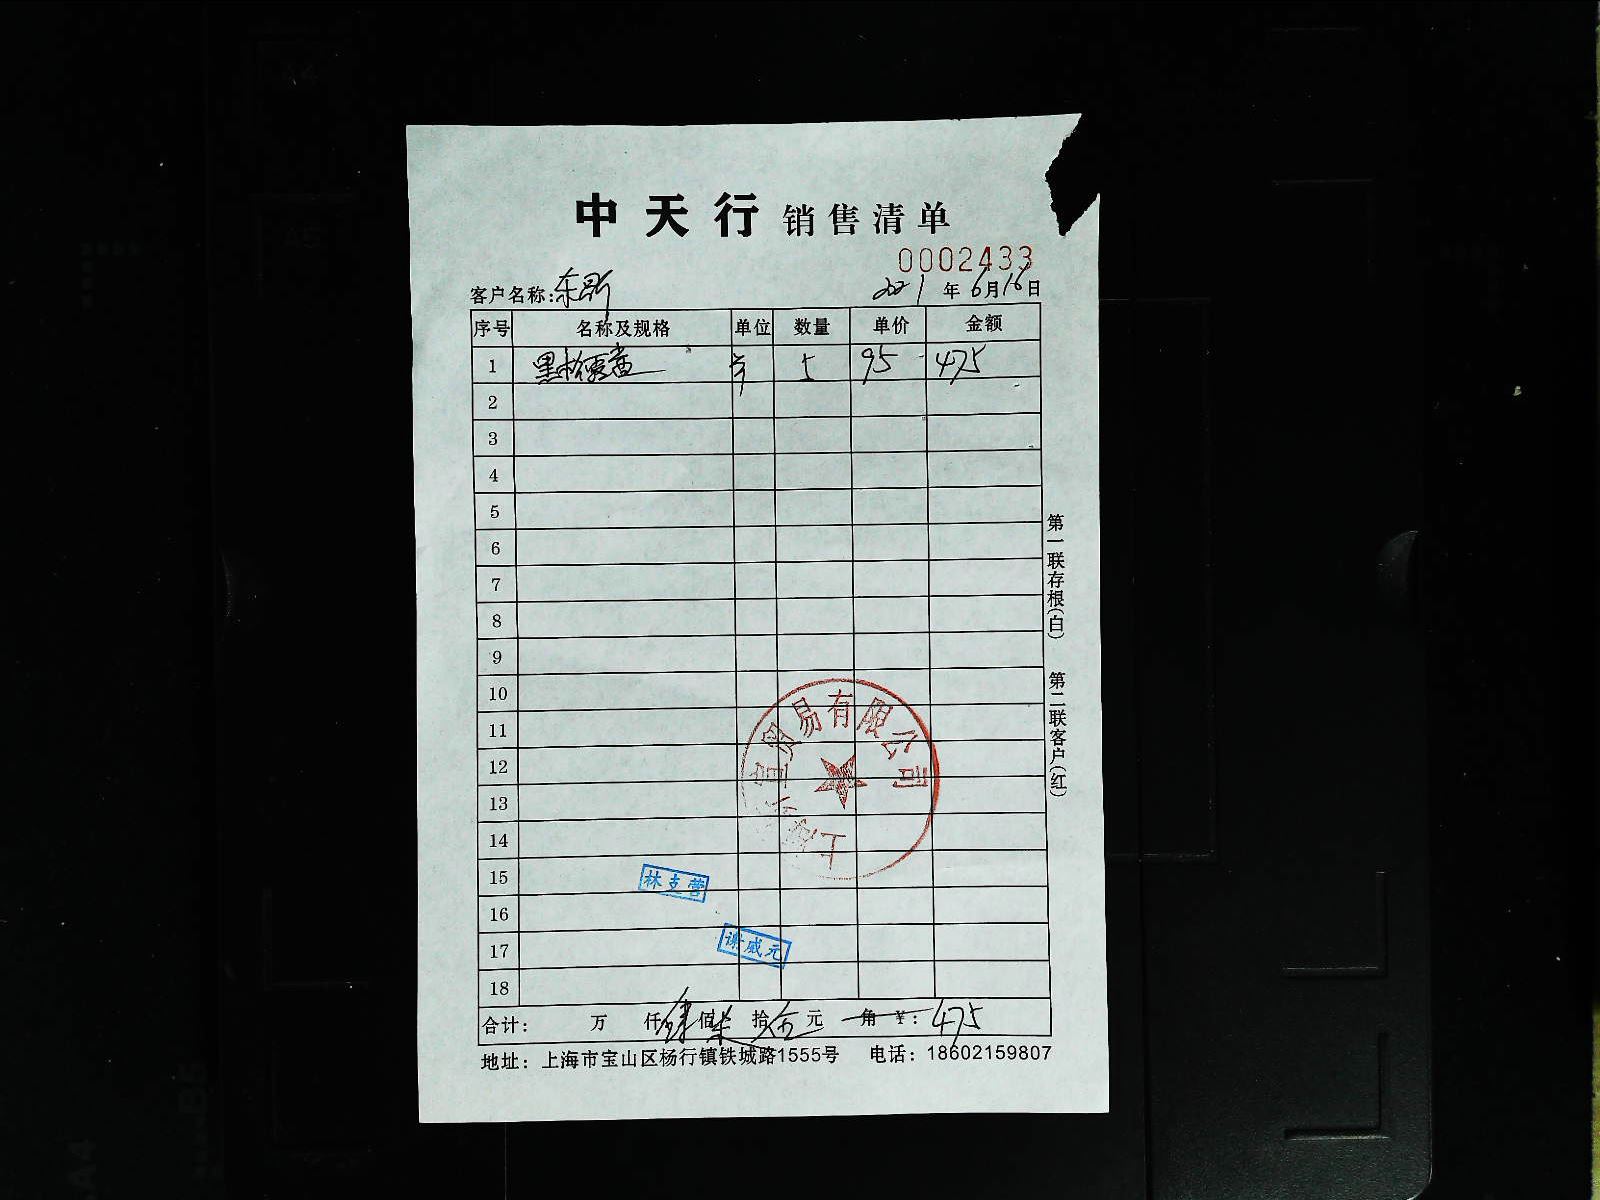 中天行 销售清单
0002433
客户名称: 2021年6月16日
序号 名称及规格 单位 数量 单价 金额
1 黑 5 95 475
2
3
4
5
6
7
8
9
10
11
12
13
14
15
16
17
18
上海 宜贸易有限公司
林支营
谢威元
合计: 万 仟肆佰柒拾伍元 角 ¥: 475
地址: 上海市宝山区杨行镇铁城路1555号 电话: 18602159807
第一联存根(白) 第二联客户(红)